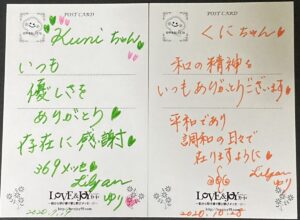 POST CARD
Kuniちゃん
いつも
優しさを
ありがとう
存在に感謝
369メッセ
Lilyan
ゆり
LOVE&JOYカード
2020.
POST CARD
くにちゃん
和の精神を
いつもありがとうございます
平和であり
調和の日々で
在りますように
Lilyan
ゆり
LOVE&JOYカード
2020.10.28